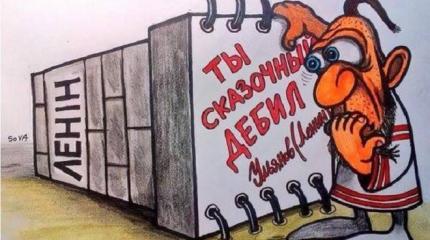 SOVA
ЛЕНІН
ТЫ
СКАЗОЧНЫЙ
ДЕБИЛ
Ульянов (Ленин)